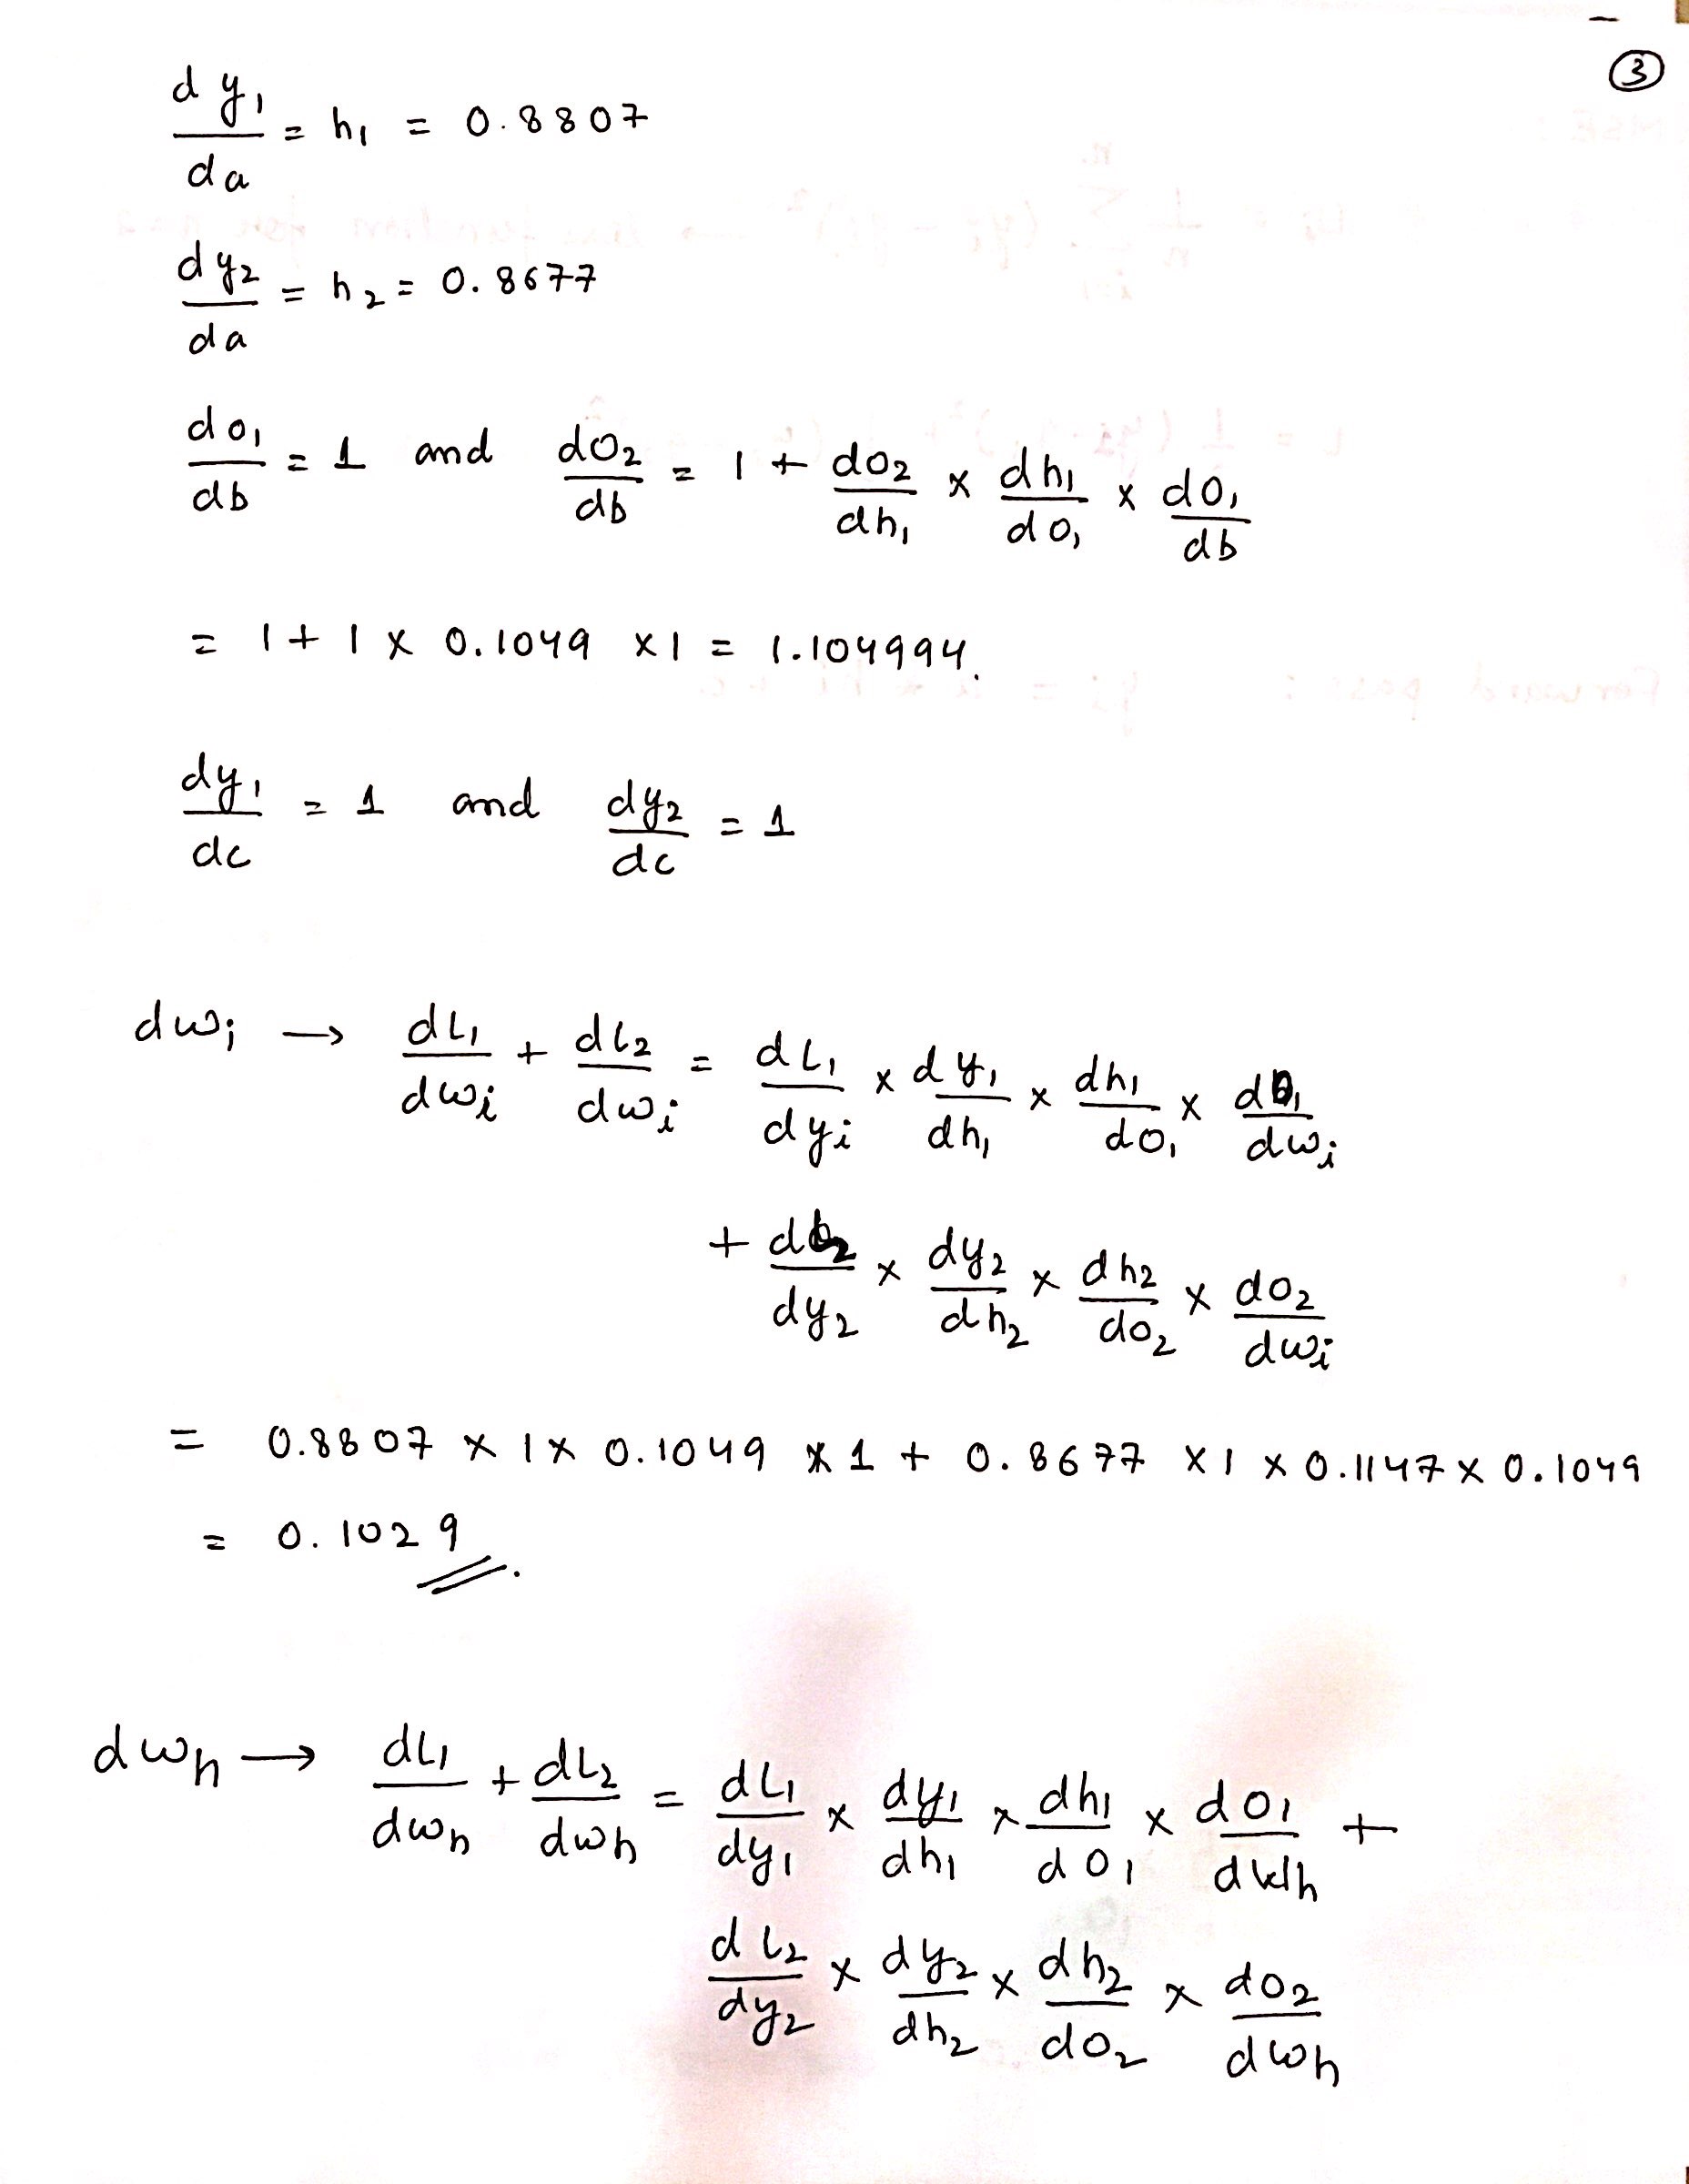 ③
dy₁/da = h₁ = 0.8807
dy₂/da = h₂ = 0.8677
do₁/db = 1 and do₂/db = 1 + do₂/dh₁ × dh₁/do₁ × do₁/db
= 1 + 1 × 0.1049 × 1 = 1.104994.
dy₁/dc = 1 and dy₂/dc = 1
dwᵢ → dL₁/dwᵢ + dL₂/dwᵢ = dL₁/dyᵢ × dy₁/dh₁ × dh₁/do₁ × do₁/dwᵢ
+ dL₂/dy₂ × dy₂/dh₂ × dh₂/do₂ × do₂/dwᵢ
= 0.8807 × 1 × 0.1049 × 1 + 0.8677 × 1 × 0.1147 × 0.1049
= 0.1029.
dwₕ → dL₁/dwₕ + dL₂/dwₕ = dL₁/dy₁ × dy₁/dh₁ × dh₁/do₁ × do₁/dwₕ +
dL₂/dy₂ × dy₂/dh₂ × dh₂/do₂ × do₂/dwₕ